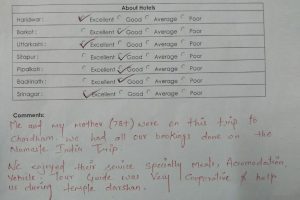 About Hotels
Haridwar: Excellent Good Average Poor
Barkot: Excellent Good Average Poor
Uttarkashi: Excellent Good Average Poor
Sitapur: Excellent Good Average Poor
Pipalkoti: Excellent Good Average Poor
Badrinath: Excellent Good Average Poor
Srinagar: Excellent Good Average Poor
Comments:
Me and my mother (78+) were on this trip to
Chardham. we had all our bookings done on the
Namaste India Trip.
We enjoyed their service specially meals, Accomodation,
Vehicle. Tour Guide was very Cooperative & help
us during temple darshan.